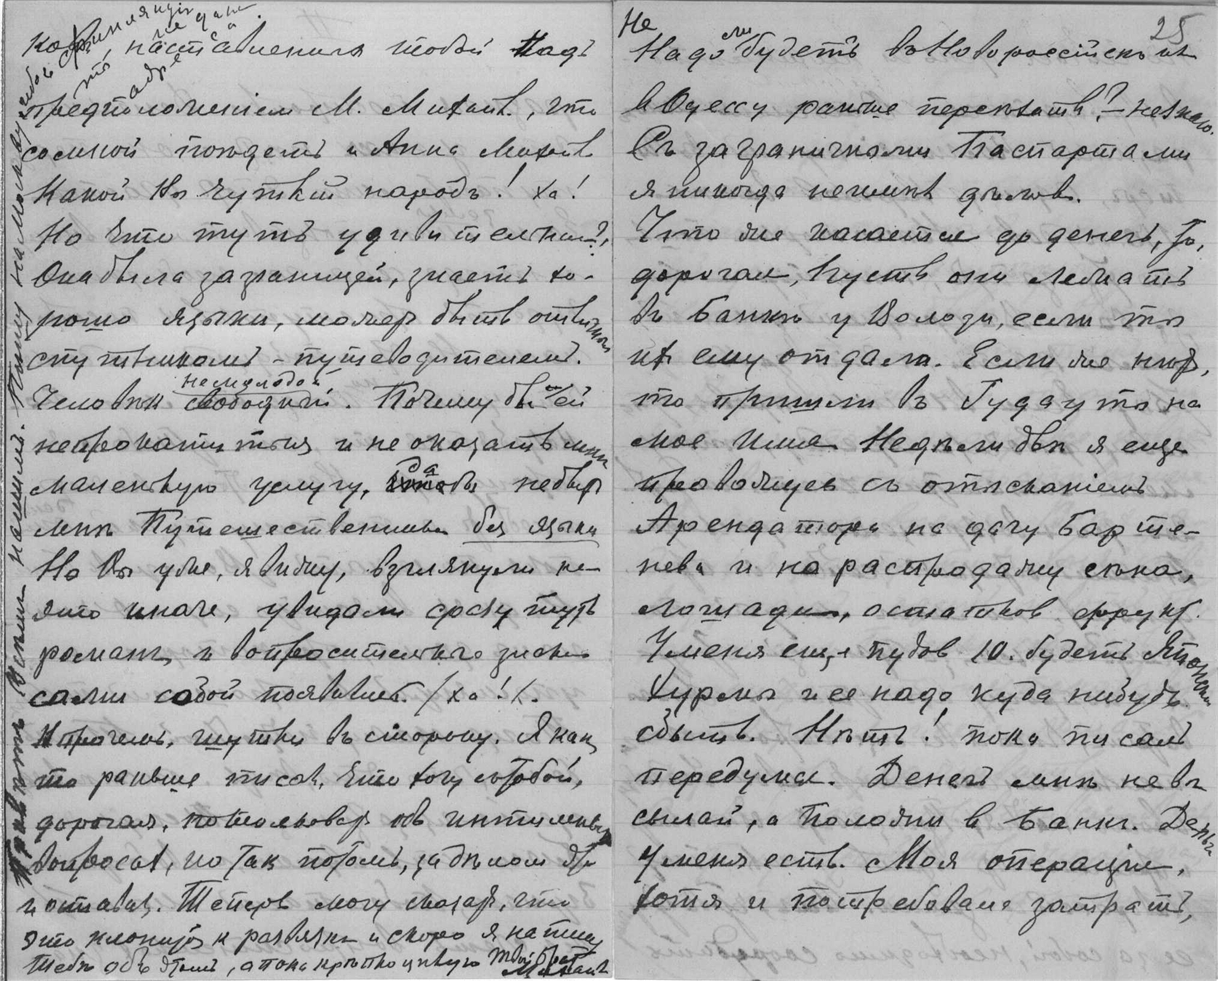 наставлениях тобой надъ
предположеніем М. Михаил., что
со мной поѣдетъ и Анна Михайл
Какой Вы чуткій народъ! Ха!
Но что тутъ удивительнаго?,
Она была заграницей, знаетъ хо-
рошо языки, может быть отличным
спутником - путеводителем.
немолодой
Человѣк свободный. Почему бы и ей
не прокатиться и не оказать мнѣ
маленькую услугу, не
мнѣ Путешественнику без языка
Но Вы уже, я вижу, взглянули на
это иначе, увидали сразу тутъ
романъ и вопросительные знаки
сами собой появились. (Ха! Х.
Впрочем, шутки въ сторону. Я как
то раньше писал, что хочу с тобой,
дорогая, потолковать об интимных
вопросах, но так потом, за дѣлом это
и оставил. Теперь могу сказать, что
это клонится к развязкѣ и скоро я напишу
тебѣ объ этом, а пока крѣпко цѣлую Твой брат
Михаил
Привѣтъ Всѣм нашим. Пишу на Москву
не дала
адреса
25
Не
Надо ли будетъ въ Новороссійск или
в Одессу раньше переѣхать? - не знаю.
Съ заграничными Паспортами
я никогда не имѣл дѣлов.
Что же касается до денег, то,
дорогая, пусть они лежатъ
въ Банкѣ у Володи, если ты
их ему отдала. Если же нѣт,
то пришли в Гудауты на
мое имя. Недѣли двѣ я еще
провожусь съ отысканіемъ
Арендатора на дачу Барте-
нева и на распродажу сѣна,
лошади, остатков фрукт.
У меня еще пудов 10. будетъ Японской
Хурмы и ее надо куда нибудь
сбыть. Нѣтъ! пока писалъ
передумал. Денегъ мнѣ не вы
сылай, а положи в Банк. Деньги
у меня есть. Моя операція,
хотя и потребовала затратъ,